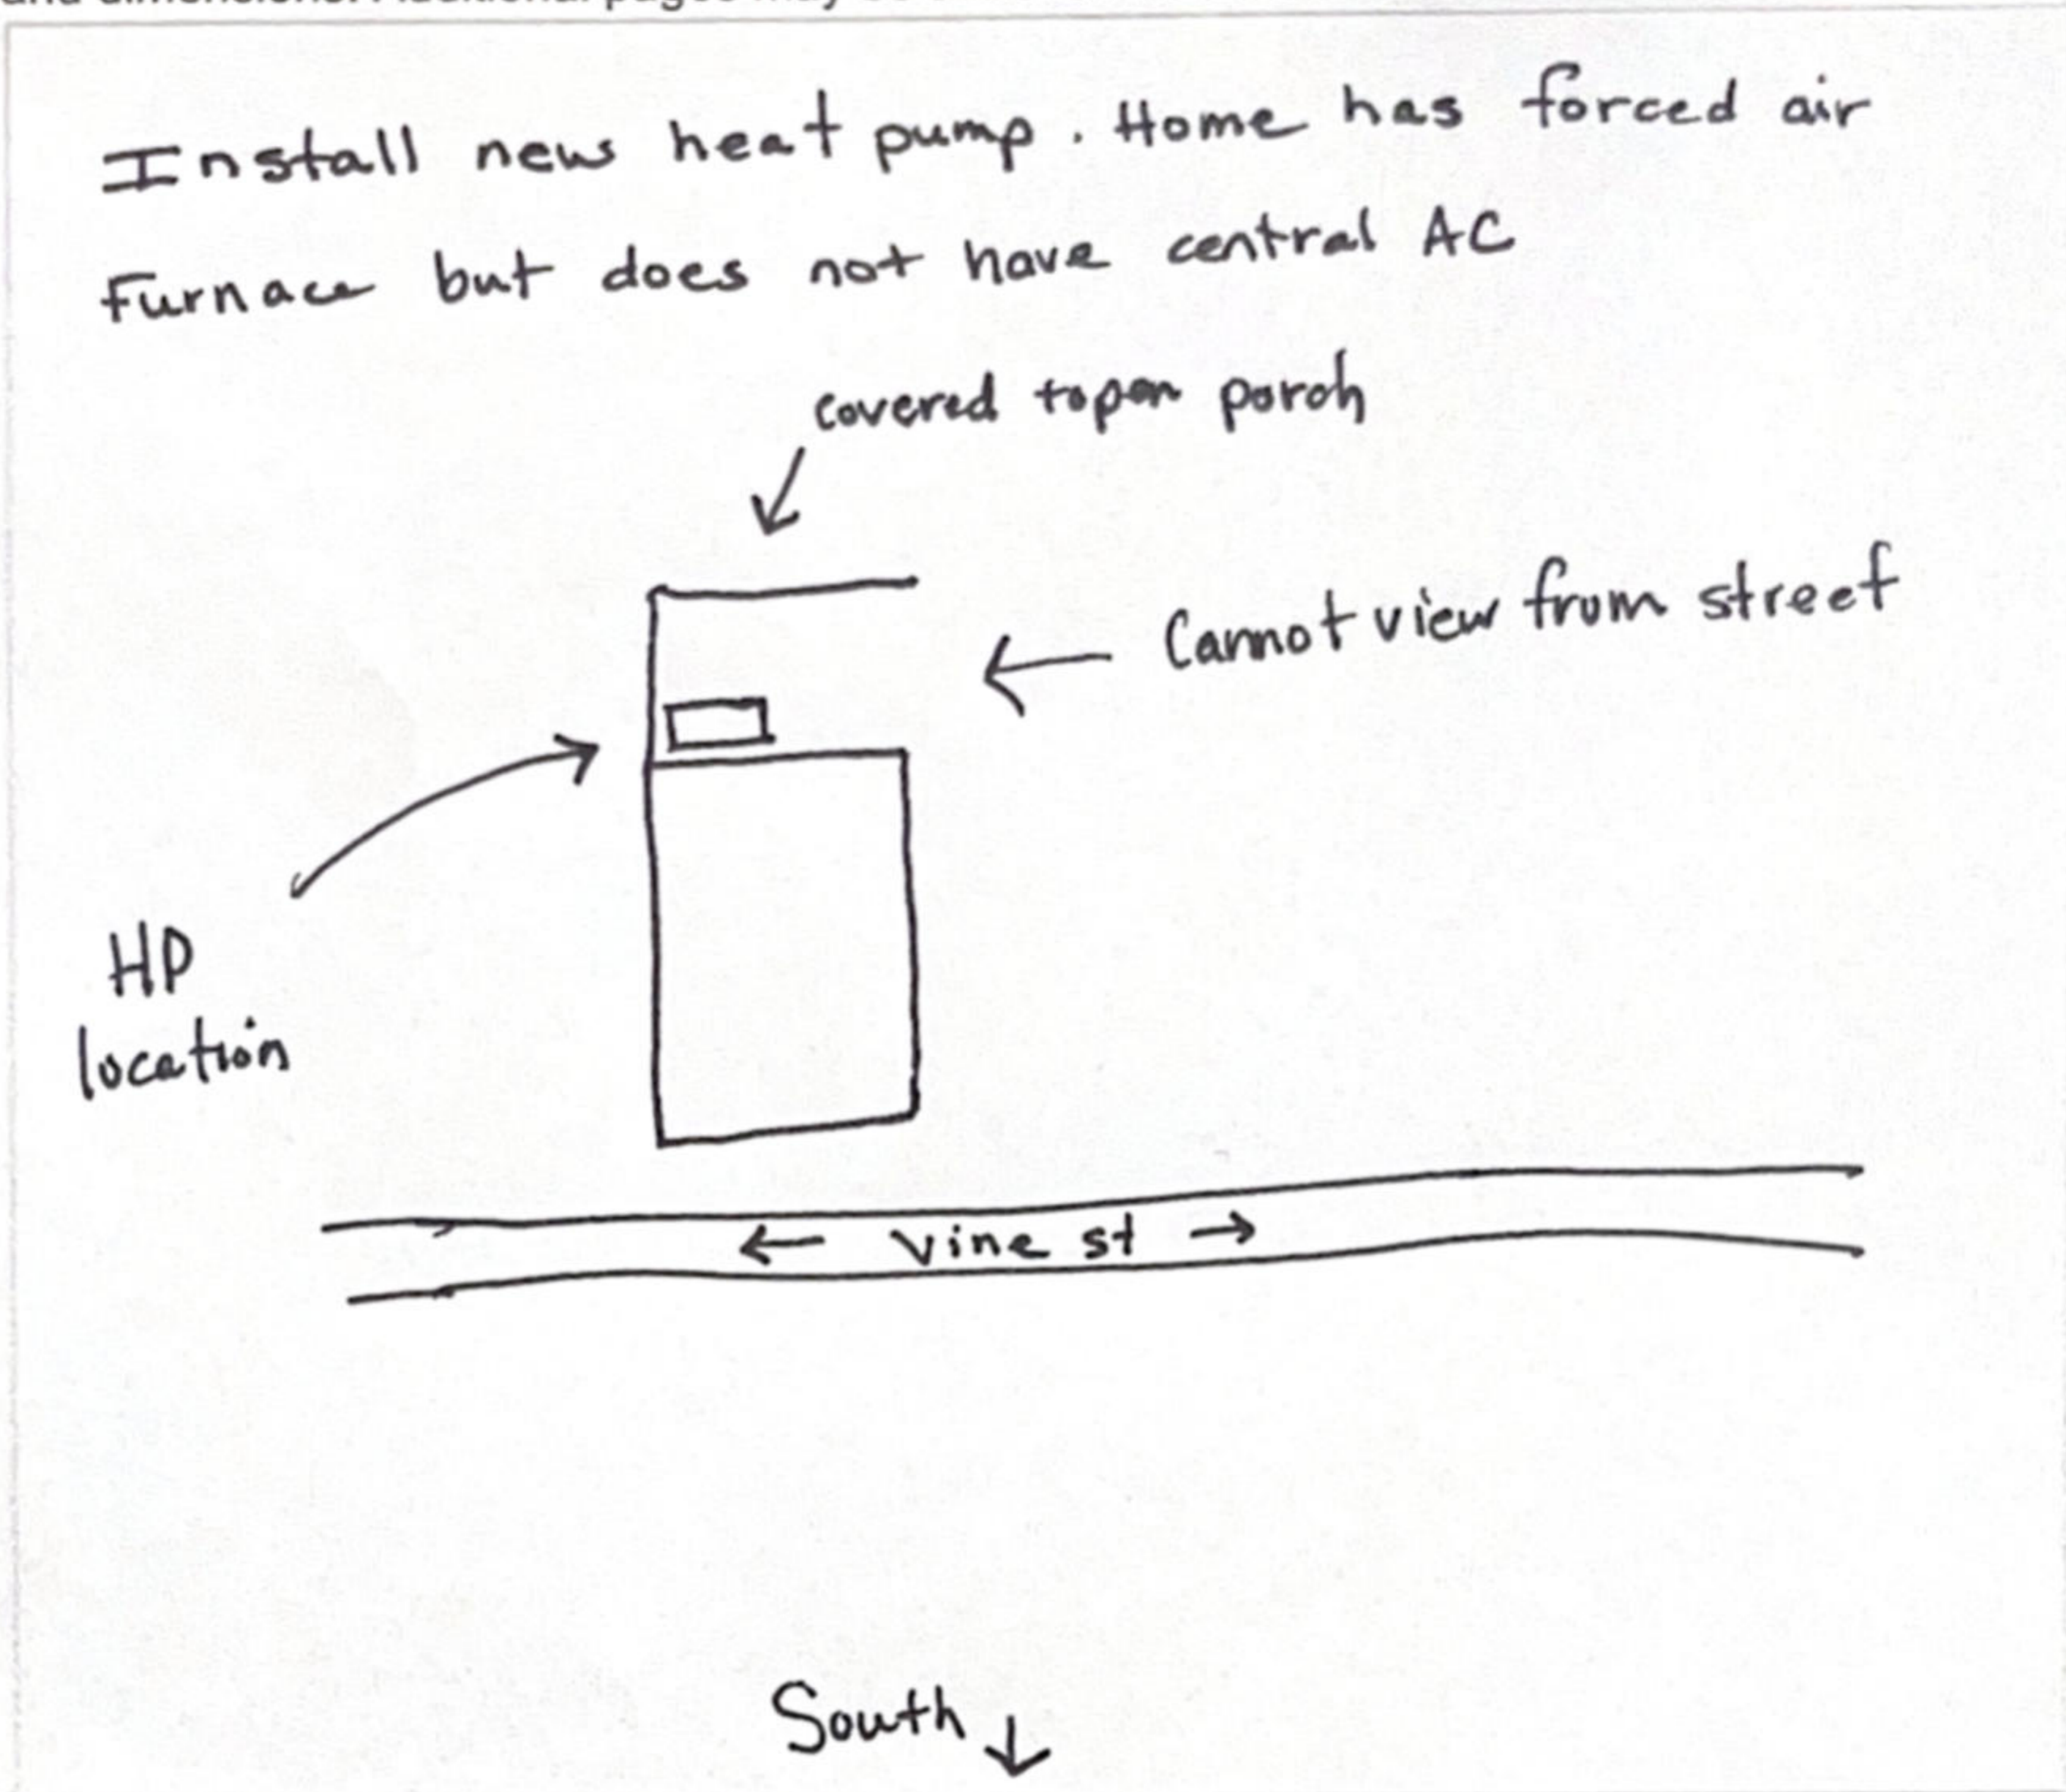 Install new heat pump. Home has forced air
Furnace but does not have central AC
covered porch
Cannot view from street
HP
location
← vine st →
South ↓